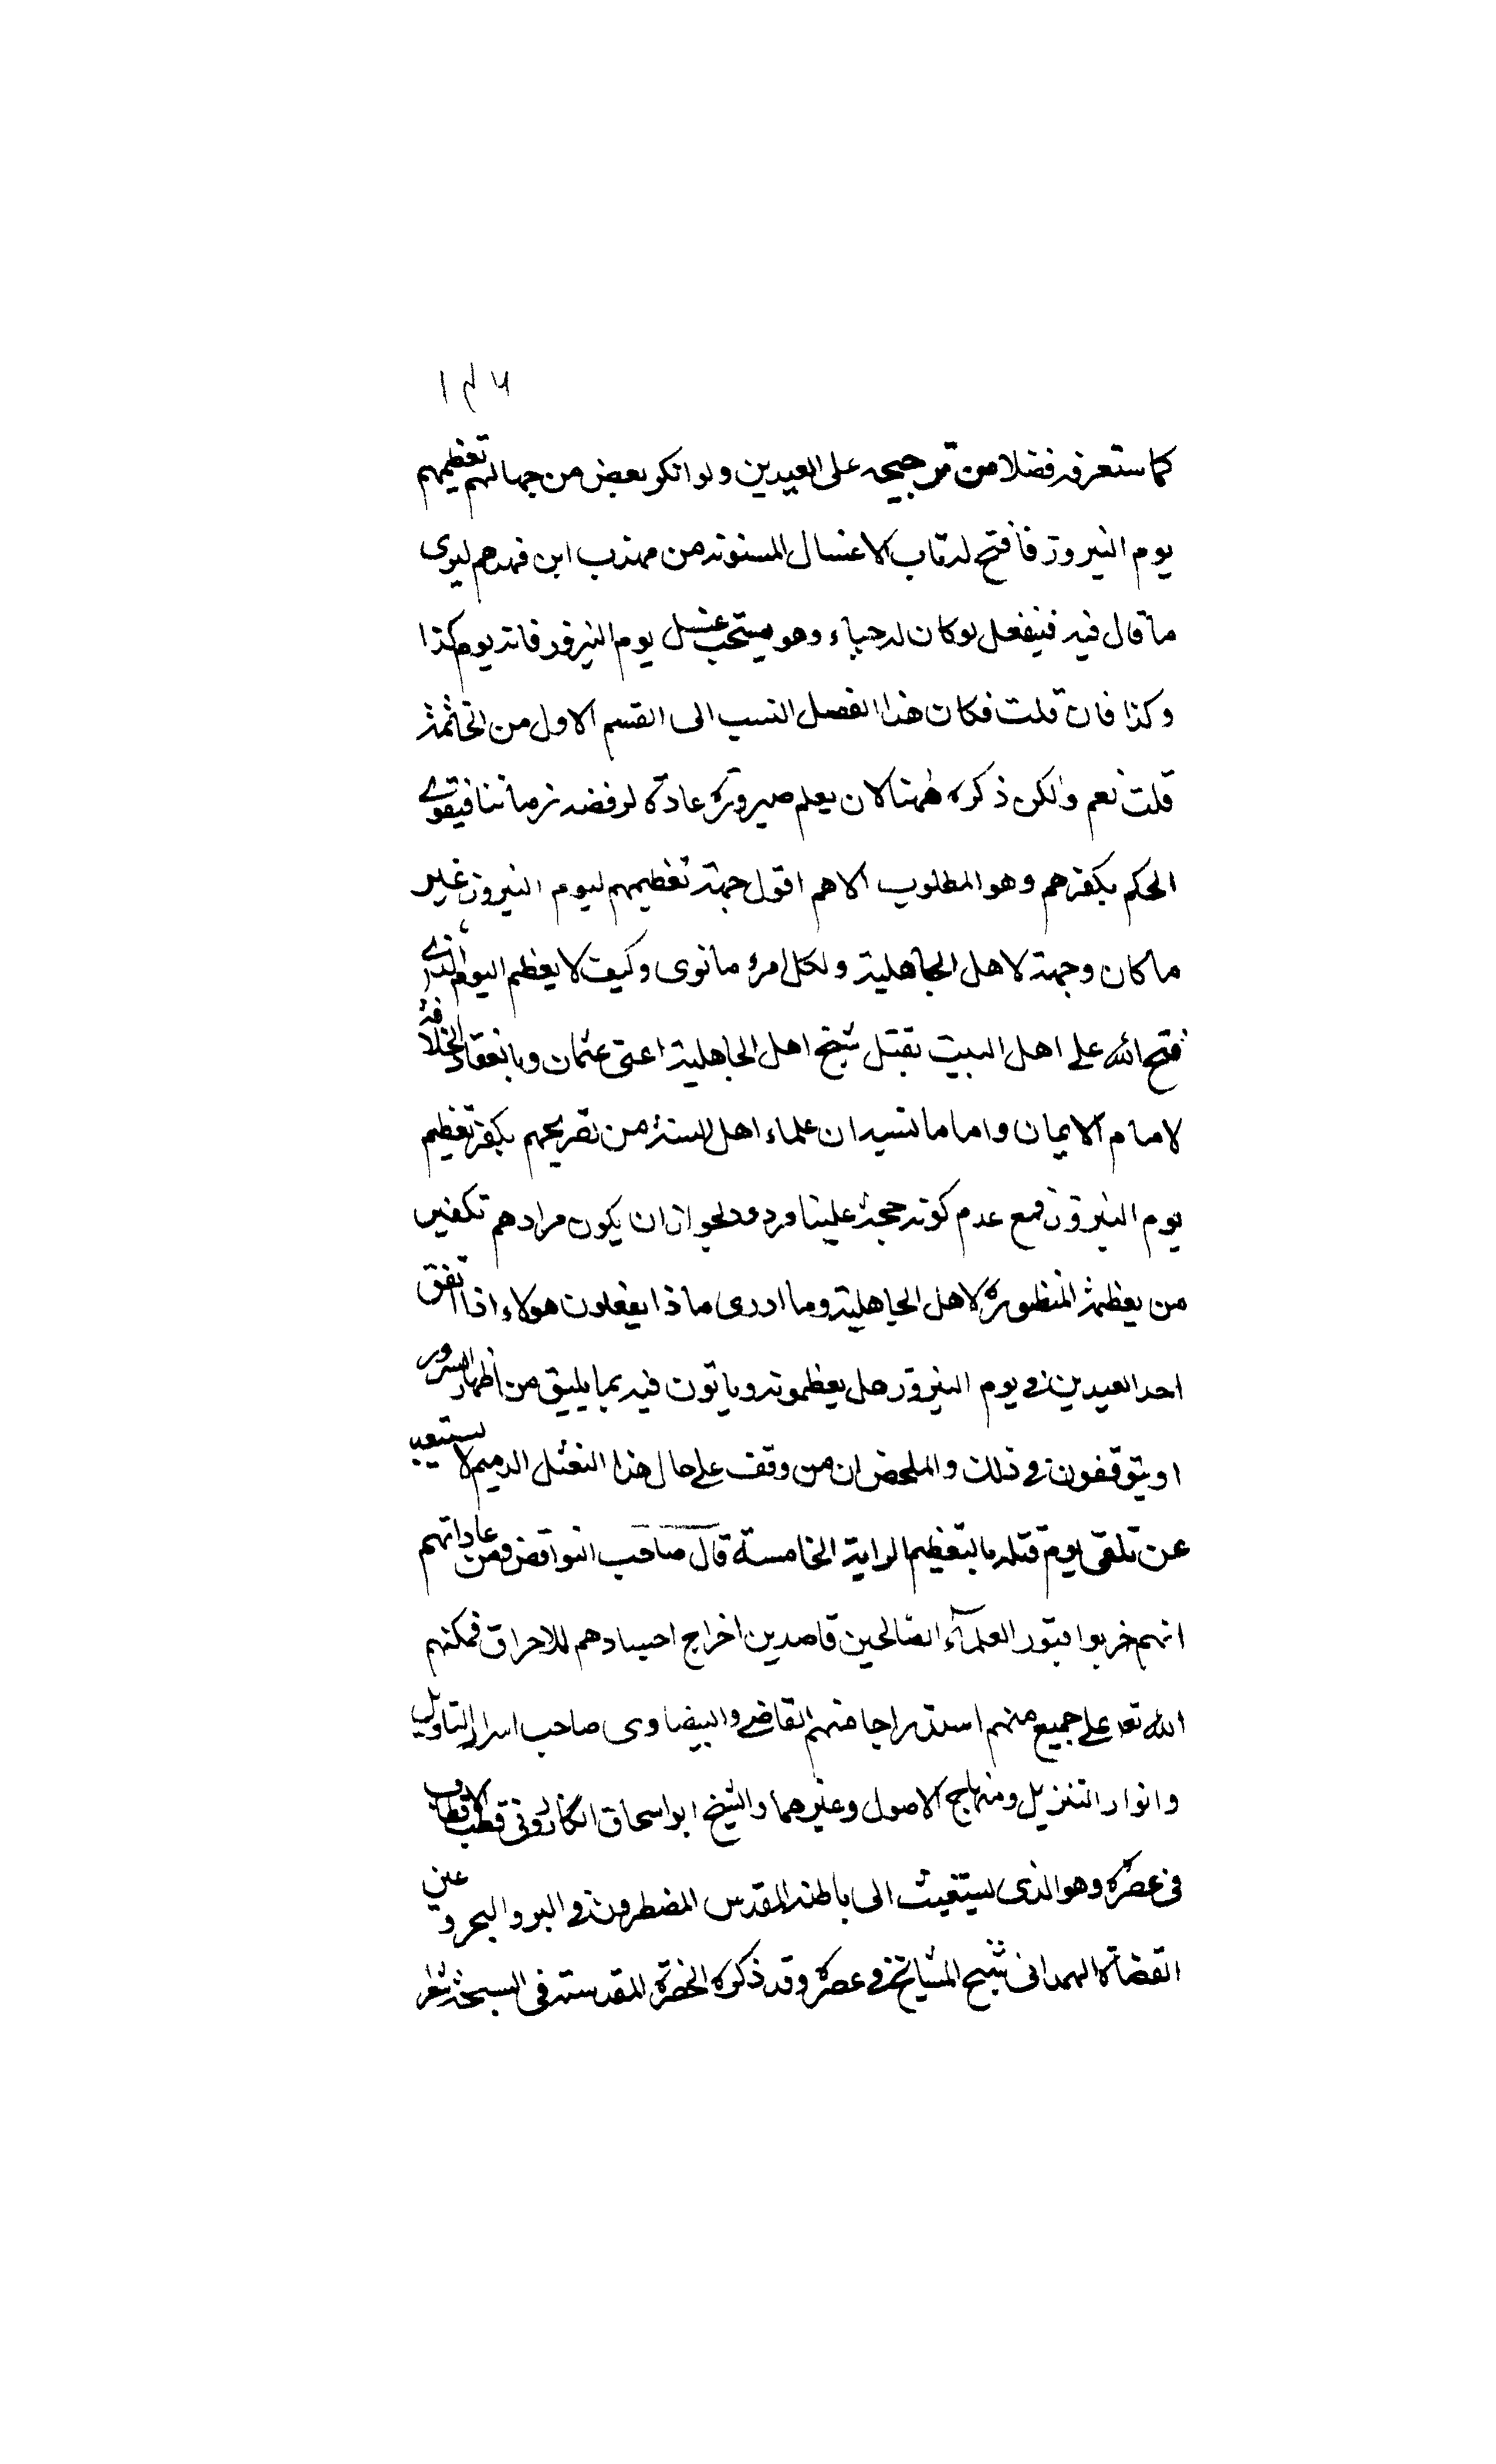 ١٤٧
كما ستعرفه فضلا من ترجيحه على العيدين ولو انكر بعض من جهالهم تعظيمهم
يوم النيروز فافتح له باب الاغسال المسنونه من مهذب ابن فهدهم ليرى
ما قال فيه فينفعل لو كان له حياء وهو يستحب غسل يوم النيروز فانه يوم كذا
وكذا فان قلت فكان هذا الفصل النسب الى القسم الاول من الخاتمة
قلت نعم ولكن ذكره ههنا لان يعلم صيرورته عادة لرفضه زماننا فيقوى
الحكم بكفرهم وهو المطلوب الاهم اقول جهة تعظيمهم ليوم النيروز غير
ما كان وجهة لاهل الجاهلية ولكل امرء ما نوى وكيف لا يعظم اليوم الذي
فتح الله على اهل البيت بقتل شيخ اهل الجاهلية اعنى عثمان وبانعقاد الخلافة
لامام الايمان واما ما نسبه ان علماء اهل السنة من تصريحهم بكفر تعظيم
يوم النيروز فمع عدم كونه حجة علينا مردود لجواز ان يكون مرادهم تكفير
من يعظمه المنظورة لاهل الجاهلية وما ادرى ماذا يفعلون هولاء اذا اتفق
احد العيدين في يوم النيروز هل يعظمونه وياتون فيه بما يليق من اظهار السرور
او يتوقفون في ذلك والملخص ان من وقف على حال هذا النعثل الذميم لا يستبعد
عن تلقى يوم قتله بالتعظيم الراية الخامسة قال صاحب النواقض ومن عاداتهم
انهم خربوا قبور العلمآء الصالحين قاصدين اخراج اجسادهم للاحراق فمكنهم
الله تعا على جميع منهم استدراجا منهم القاضي والبيضاوى صاحب اسرار التاويل
وانوار التنزيل ومنهاج الاصول وغيرهما والشيخ ابو اسحاق الكازرونى قطب الاقطاب
فى عصره وهو الذى يستغيث الى باطنه المقدس المضطرون في البر والبحر وعين
القضاة الهمدانى شيخ المشايخ في عصره وقد ذكره الحضرة المقدسة فى السبحة شعر